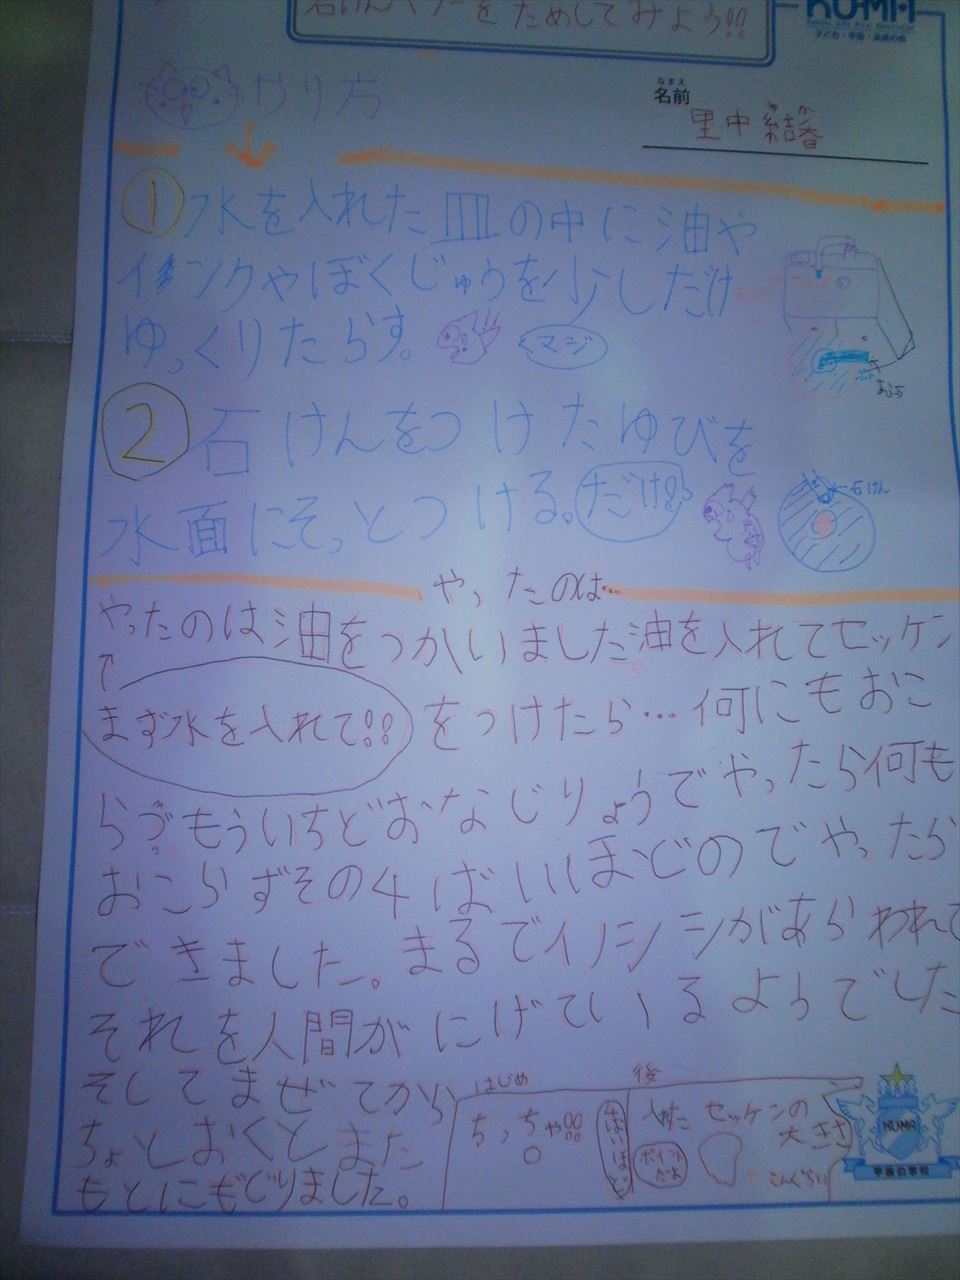 石けんパワーをためしてみよう!!
KU-MA
子ども・宇宙・未来の会
やり方
なまえ
名前
ゆ か
里中 結香
① 水を入れた皿の中に油や
インクやぼくじゅうを少しだけ
ゆっくりたらす。 マジ
あぶら
② 石けんをつけたゆびを
水面にそっとつける。だけ!!
石けん
やったのは
やったのは油をつかいました。油を入れてセッケン
まず水を入れて!! をつけたら…何にもおこ
らづもういちどおなじりょうでやったら何も
おこらずその4ばいほどのでやったら
できました。まるでイノシシがあらわれて
それを人間がにげているようでした
そしてまぜてから
ちょっとおくとまた
もとにもどりました。
はじめ
ちっちゃ!!
4ばいほど
後
入れた セッケンの
大きさ
ポイント
だよ
こんぐらい
KUMA
宇宙の学校